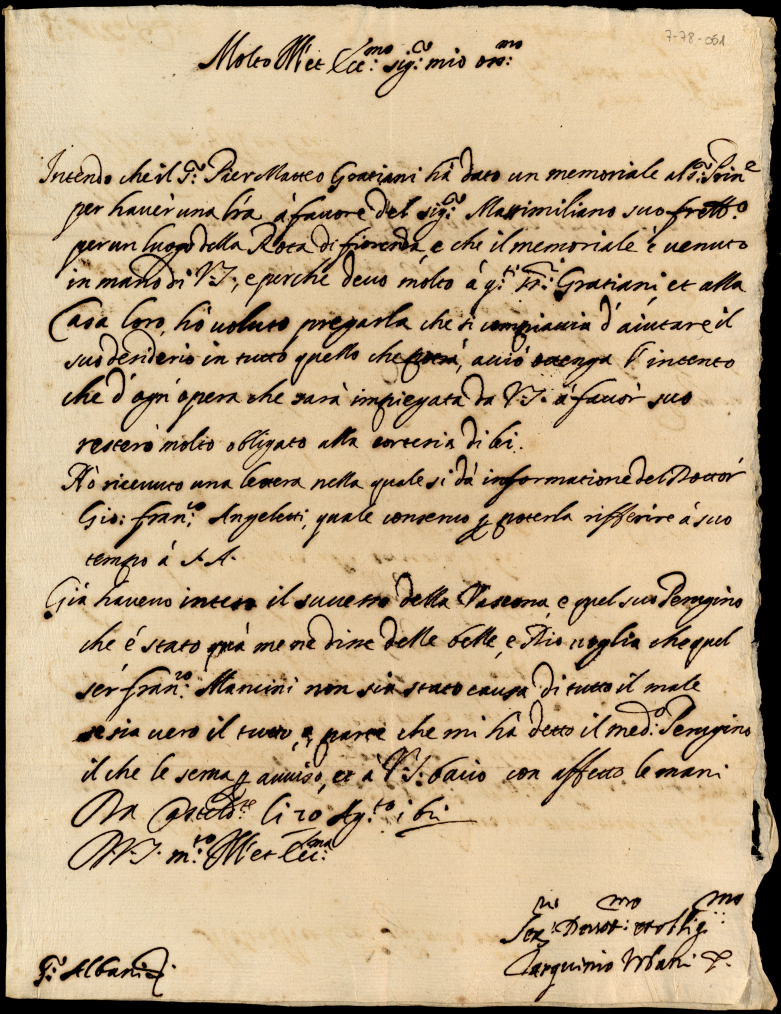 7-78-051
Molto Ill et Ecc:mo sig:r mio oss:mo
Intendo che il S:r Pier Matteo Gratiani há dato un memoriale al S:r Prin:e
per haver una lra á favore del sig:r Massimiliano suo fratt:o
per un luogo della Rota di fiorenza, e che il memoriale é venuto
in mano di V.S., e perche devo molto á q:ti SS:ri Gratiani et alla
Casa loro, hó voluto pregarla che si compiaccia d'aiutare il
suo desiderio in tutto quello che potrá, acció ottenga l'intento
che d'ogn'opera che sará impiegata da V.S. á favor suo
resteró molto obligato alla cortesia di lei.
Hó ricevuto una lettera nella quale si dá informatione del Dottor
Gio: fran:co Angeletti, quale conservo p poterla rifferire á suo
tempo á S.A.
Giá havevo inteso il successo della Vascona, e quel suo Perugino
che é stato quá me ne disse delle belle, e Dio voglia che quel
ser fran:co Mancini non sia stato causa di tutto il male
se sia vero il tutto, ó parte che mi há detto il med:o Perugino
il che le serva p avviso, et á V.S. bacio con affetto le mani
Da Casteld:te li 20 Ag:to
D.V.S. m:to Ill et Ecc:ma
Ser:re Devot:mo et oblig:mo
Tarquinio Urbani
S:r Albani